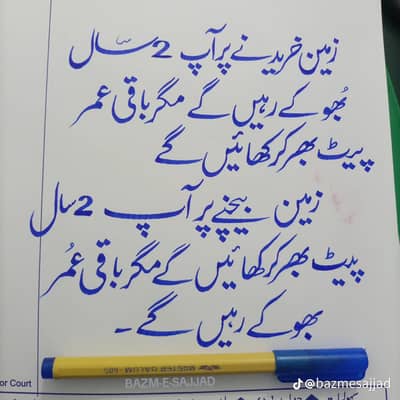 زمین خریدنے پر آپ 2 سال
بُھوکے رہیں گے مگر باقی عمر
پیٹ بھر کر کھائیں گے
زمین بیچنے پر آپ 2 سال
پیٹ بھر کر کھائیں گے مگر باقی عمُر
بھوکے رہیں گے ۔
or Court
BAZM-E-SAJJAD
@bazmesajjad